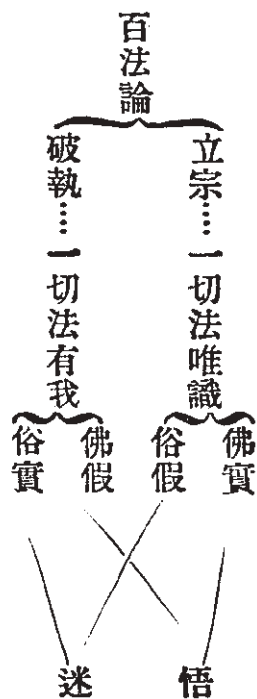 百法論
立宗……一切法唯識
佛實
俗假
破執……一切法有我
佛假
俗實
悟
迷